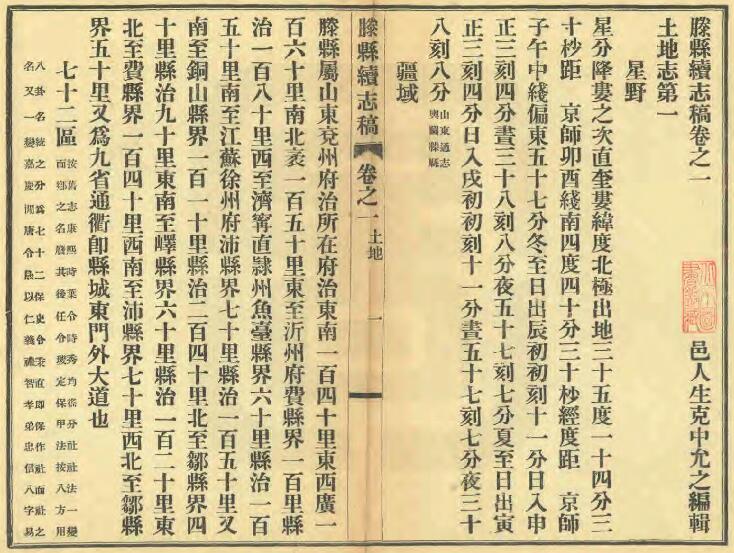 滕縣續志稿卷之一 邑人生克中允之編輯
土地志第一
星野
星分降婁之次直奎婁緯度北極出地三十五度一十四分三
十杪距 京師卯酉綫南四度四十分三十杪經度距 京師
子午中綫偏東五十七分冬至日出辰初初刻十一分日入申
正三刻四分晝三十八刻八分夜五十七刻七分夏至日出寅
正三刻四分日入戌初初刻十一分晝五十七刻七分夜三十
八刻八分 山東通志
輿圖滕縣
疆域
滕縣續志稿 卷之一 土地 一
滕縣屬山東兗州府治所在府治東南一百四十里東西廣一
百六十里南北袤一百五十里東至沂州府費縣界一百里縣
治一百八十里西至濟寧直隸州魚臺縣界六十里縣治一百
五十里南至江蘇徐州府沛縣界七十里縣治一百五十里又
南至銅山縣界一百一十里縣治二百四十里北至鄒縣界四
十里縣治九十里東南至嶧縣界六十里縣治一百二十里東
北至費縣界一百四十里西南至沛縣界七十里西北至鄒縣
界五十里又爲九省通衢卽縣城東門外大道也
七十二區 按舊志康熙時葉令時秀均徭分社社法一變
而鄉之名廢其後任令璣定保甲法按八方用
八卦名統之分爲七十二保史令秉直卽保作社而社之
名又一變嘉慶間唐令愚以仁義禮智孝弟忠信八字易